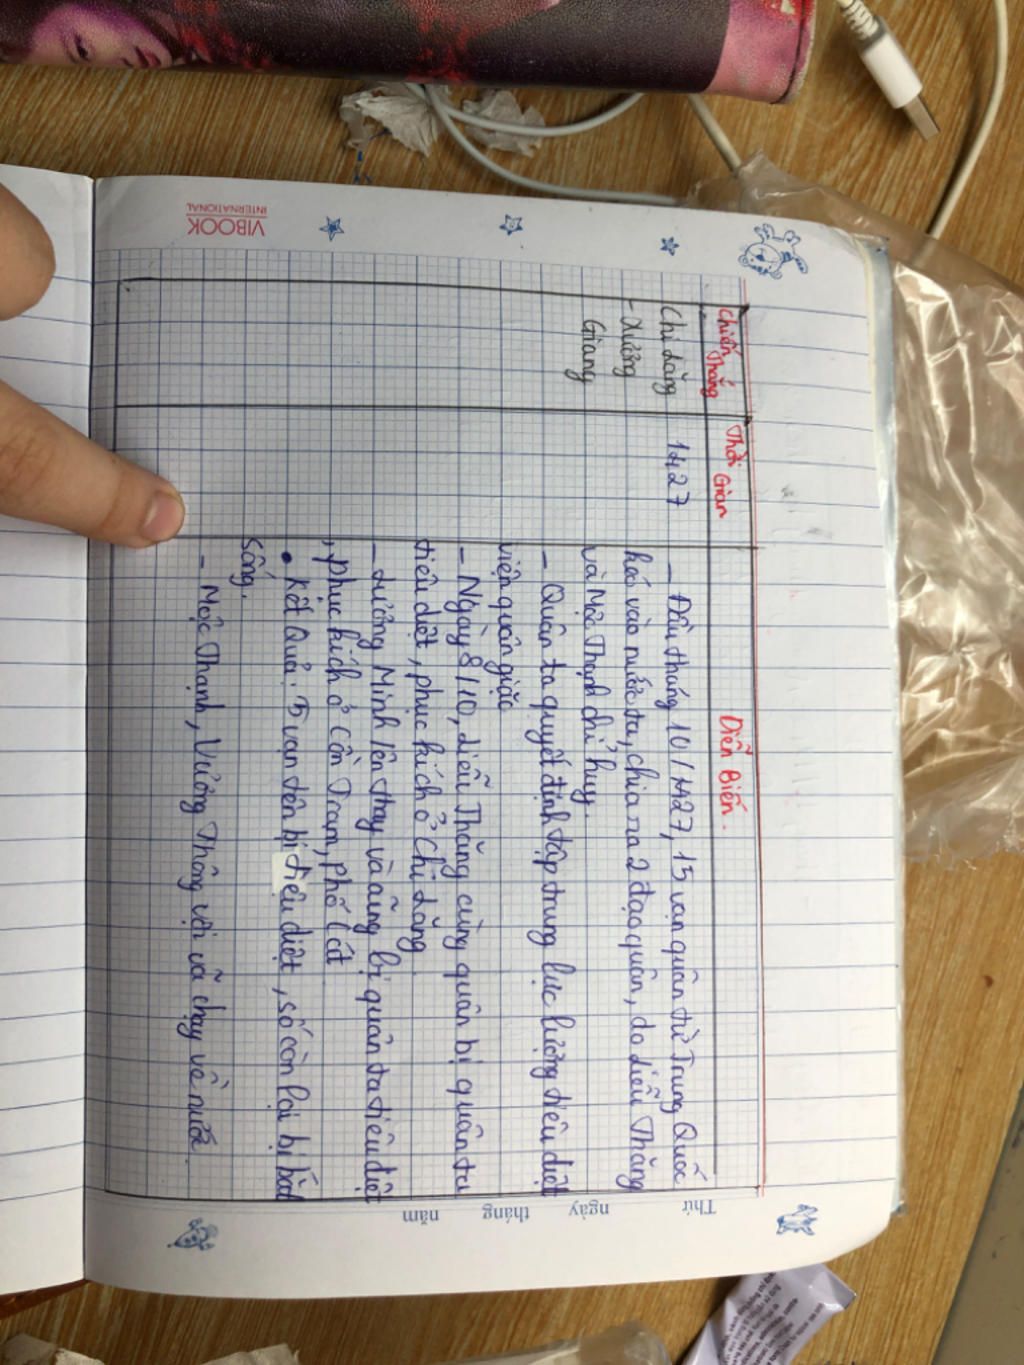 VIBOOK
INTERNATIONAL
Chiến Thắng
Thời Gian
Diễn Biến.
Chi Lăng
- Xương
Giang
1427
- Đầu tháng 10/1427, 15 vạn quân từ Trung Quốc
kéo vào nước ta, chia ra 2 đạo quân, do Liễu Thăng
và Mộc Thạnh chỉ huy.
- Quân ta quyết định tập trung lực lượng tiêu diệt
viện quân giặc
- Ngày 8/10, Liễu Thăng cùng quân bị quân ta
tiêu diệt, phục kích ở Chi Lăng.
- Lương Minh lên thay và cũng bị quân ta tiêu diệt
, phục kích ở Cần Trạm, phố Cát
• Kết Quả: 5 vạn tên bị tiêu diệt, số còn lại bị bắt
sống.
- Mộc Thạnh, Vương Thông vội vã chạy về nước.
Thứ ngày tháng năm